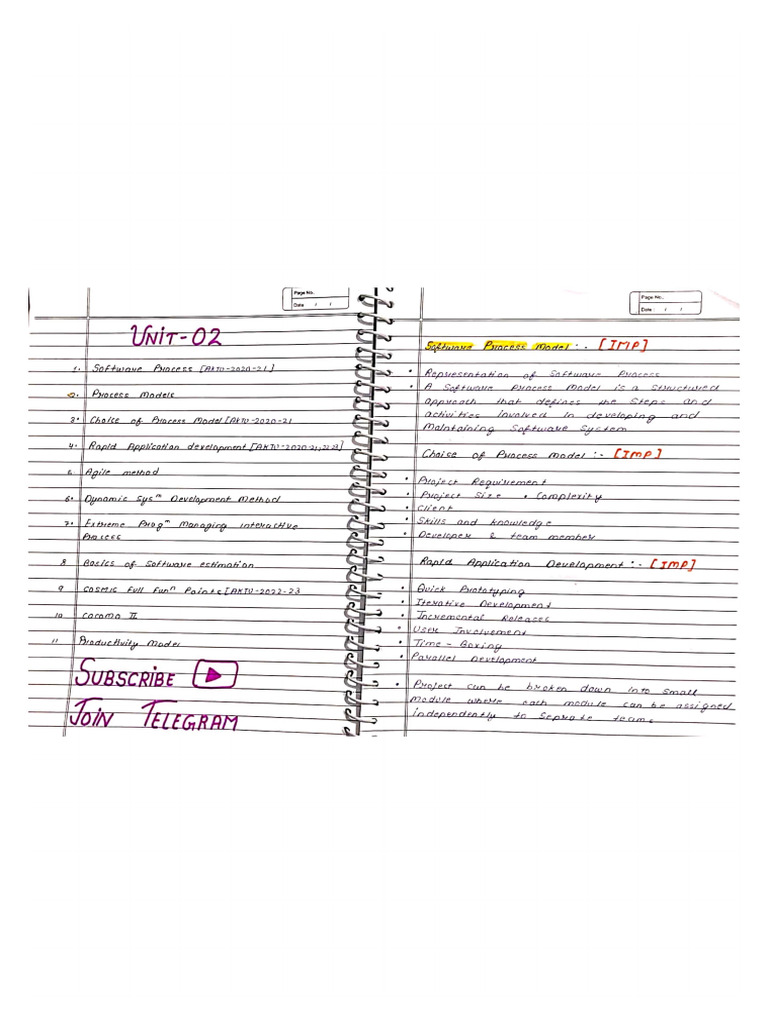 Page No.
Date / /
UNIT-02
1. Software Process [AKTU-2020-21]
2. Process Models
3. Choice of Process Model [AKTU-2020-21
4. Rapid Application development [AKTU-2020-21, 22-23]
5. Agile method
6. Dynamic Sysᵐ Development Method
7. Extreme Progᵐ Managing interactive
Process
8 Basics of Software estimation
9 COSMIC Full Funⁿ Points [AKTU-2022-23
10 Cocomo II
11 Productivity Model
SUBSCRIBE
JOIN TELEGRAM
Page No.
Date : / /
Software Process Model :- [IMP]
• Representation of Software Process
• A Software Process Model is a structured
approach that defines the Steps and
activities involved in developing and
Maintaining Software System
Choise of Process model :- [IMP]
• Project Requirement
• Project Size • Complexity
• Client
• Skills and knowledge
• Developer & team member
Rapid Application Development :- [IMP]
• Quick Prototyping
• Iterative Development
• Incremental Releases
• User Involvement
• Time-Boxing
• Parallel Development
• Project can be broken down into small
module where each module can be assigned
independently to Seprate teams